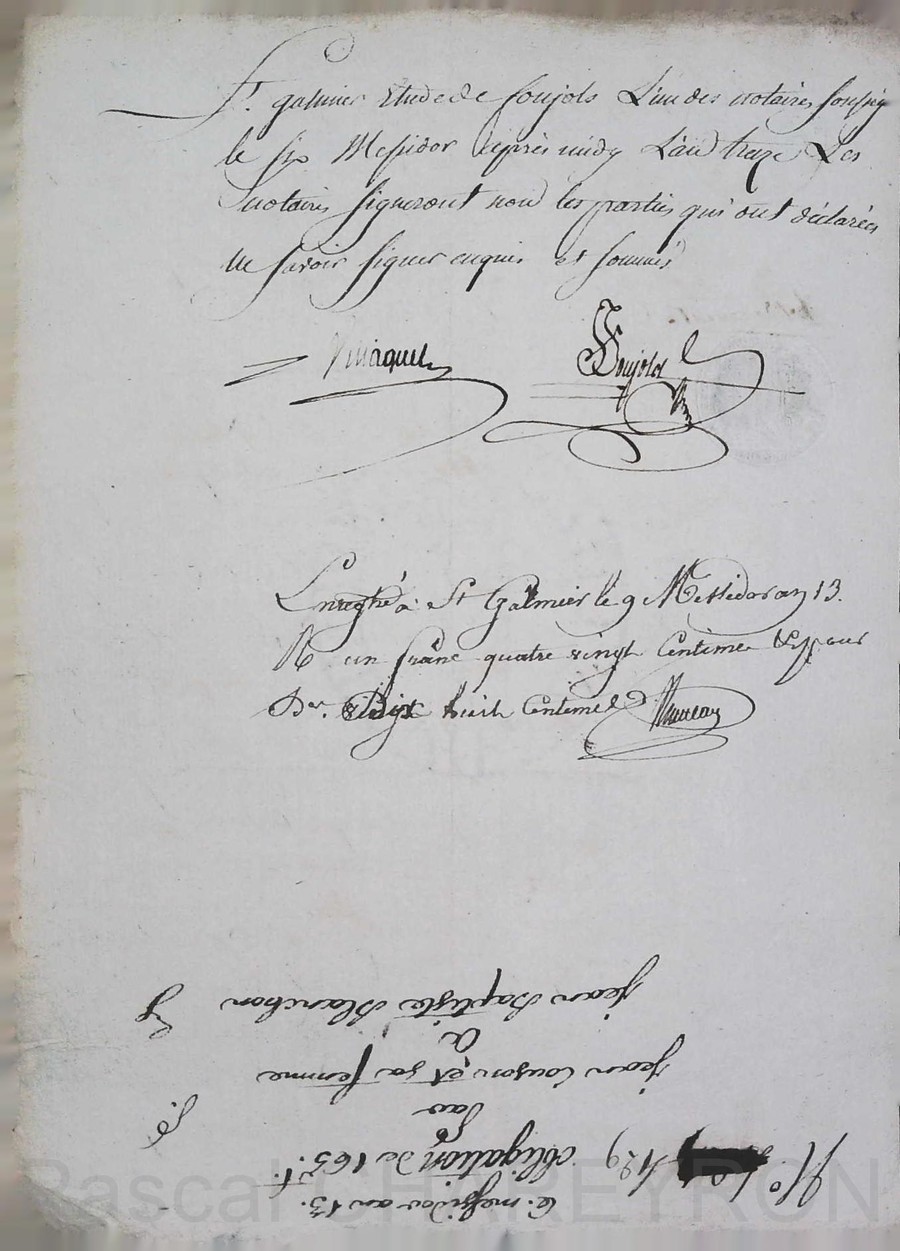 St. galmier Etude de Soujols L'un des notaires soussig
le six Messidor après midy L'an treize Les
notaires signeront non les parties qui ont déclarées
ne savoir signer enquis et sommés
Soujols
Enregtré à St Galmier le 9 Messidor an 13.
R un franc quatre vingt Centimes & pour
Don. dix huit Centimes
6e messidor an 13.
N° 129 obligation de 165. f.
par
jean couson et sa femme
a
jean Baptiste Blanchon
Pascal CHAREYRON